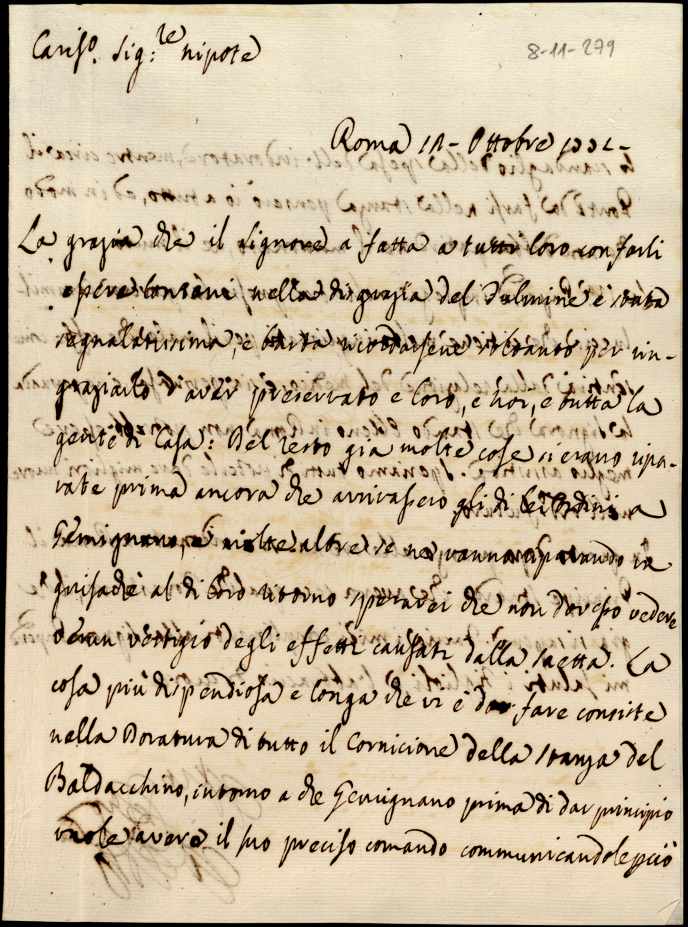 Cariso. Sig:re nipote
8-11-279
Roma 12 - Ottobre
La grazia che il Signore a fatta a tutti loro con farli
essere lontani nella disgrazia del Fulmine è stata
segnalatissima, e basta ricordarsene soltanto per rin-
graziarlo d'aver preservato e loro, e noi, e tutta la
gente di Casa: Del resto già molte cose si erano ripa-
rate prima ancora che arrivassero gli di lei Ordini a
Gemignano, e molte altre se ne vanno riparando in
guisa che al di loro ritorno sperarei che non dovessero vedere
verun vestigio degli effetti causati dalla saetta. La
cosa più dispendiosa e longa che vi è da fare consiste
nella Doratura di tutto il Cornicione della stanza del
Baldacchino, intorno a che Gemignano prima di dar principio
vuole avere il suo preciso comando communicandole però